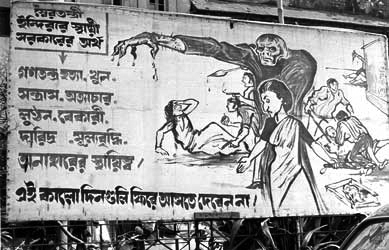 স্বৈরতন্ত্রী
ইন্দিরার স্থায়ী
সরকারের অর্থ
গণতন্ত্র হত্যা, খুন,
সন্ত্রাস, অত্যাচার,
লুণ্ঠন, বেকারী,
দারিদ্র, মূল্যবৃদ্ধি,
অনাহারের স্থায়িত্ব!
এই কালো দিনগুলি ফিরে আসতে দেবেন না!